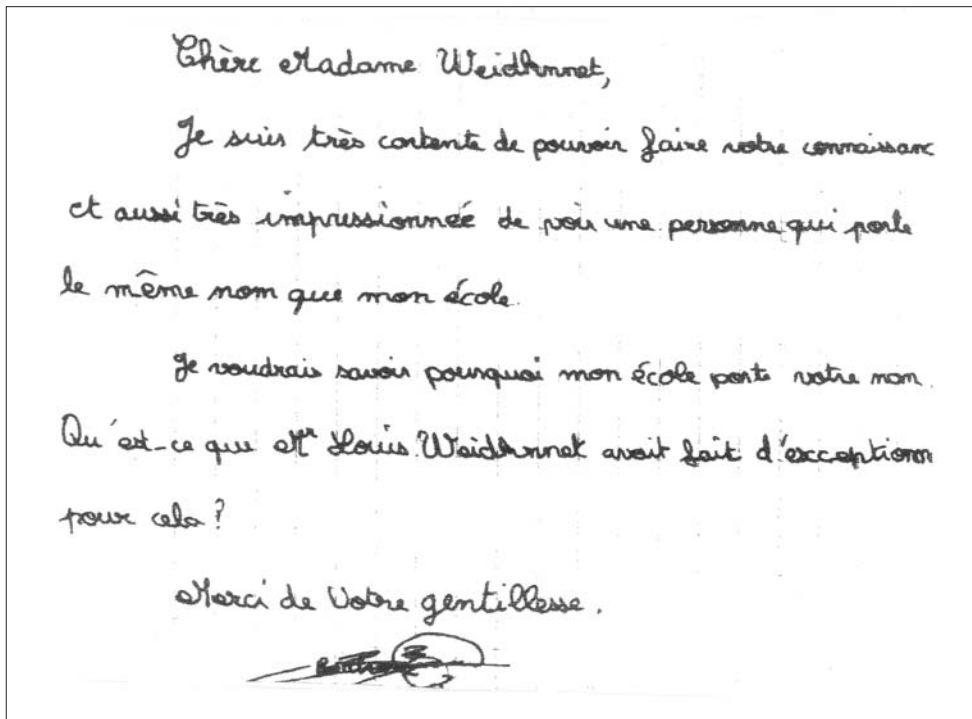 Chère Madame Weidknnet,
Je suis très contente de pouvoir faire votre connaissanc
et aussi très impressionnée de voir une personne qui porte
le même nom que mon école.
Je voudrais savoir pourquoi mon école porte votre nom.
Qu'est-ce que Mr Louis Weidknnet avait fait d'exceptionn
pour cela ?
Merci de Votre gentillesse.